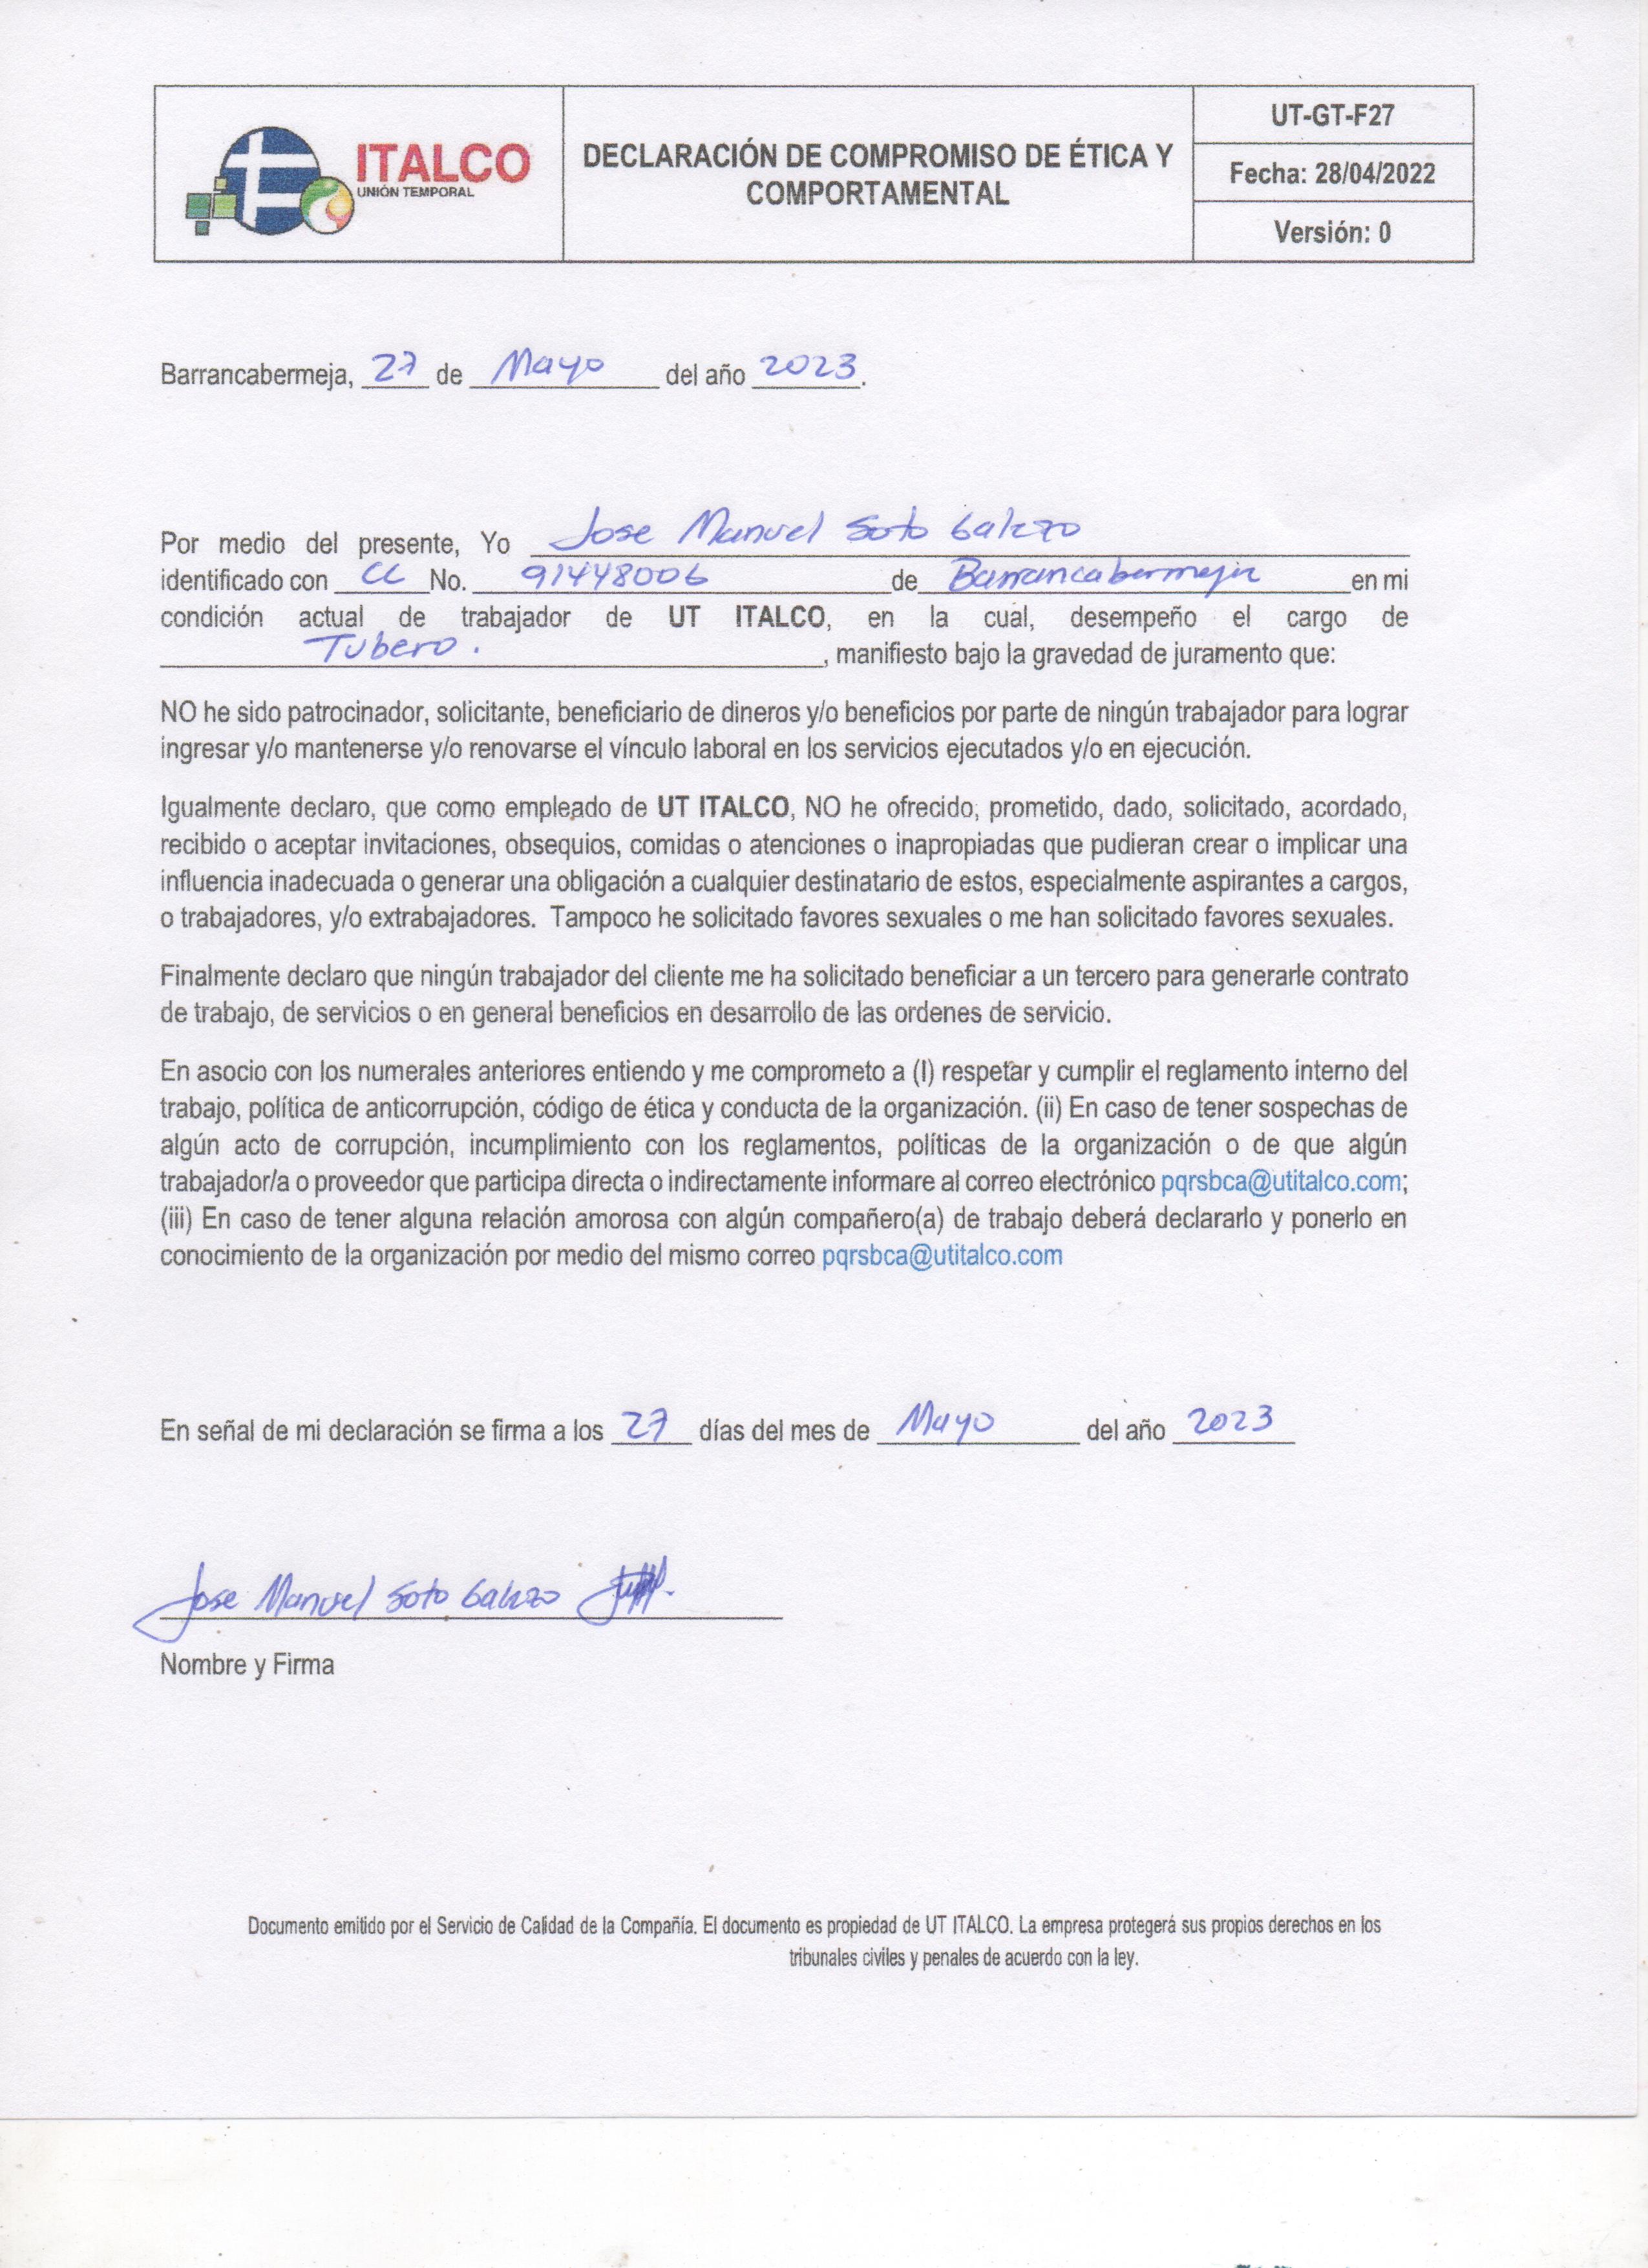 ITALCO
UNIÓN TEMPORAL
DECLARACIÓN DE COMPROMISO DE ÉTICA Y
COMPORTAMENTAL
UT-GT-F27
Fecha: 28/04/2022
Versión: 0
Barrancabermeja, 27 de Mayo del año 2023.
Por medio del presente, Yo Jose Manuel Soto
identificado con CC No. 91448006 de Barrancabermeja en mi
condición actual de trabajador de UT ITALCO, en la cual, desempeño el cargo de
Tubero. , manifiesto bajo la gravedad de juramento que:
NO he sido patrocinador, solicitante, beneficiario de dineros y/o beneficios por parte de ningún trabajador para lograr
ingresar y/o mantenerse y/o renovarse el vínculo laboral en los servicios ejecutados y/o en ejecución.
Igualmente declaro, que como empleado de UT ITALCO, NO he ofrecido, prometido, dado, solicitado, acordado,
recibido o aceptar invitaciones, obsequios, comidas o atenciones o inapropiadas que pudieran crear o implicar una
influencia inadecuada o generar una obligación a cualquier destinatario de estos, especialmente aspirantes a cargos,
o trabajadores, y/o extrabajadores. Tampoco he solicitado favores sexuales o me han solicitado favores sexuales.
Finalmente declaro que ningún trabajador del cliente me ha solicitado beneficiar a un tercero para generarle contrato
de trabajo, de servicios o en general beneficios en desarrollo de las ordenes de servicio.
En asocio con los numerales anteriores entiendo y me comprometo a (I) respetar y cumplir el reglamento interno del
trabajo, política de anticorrupción, código de ética y conducta de la organización. (ii) En caso de tener sospechas de
algún acto de corrupción, incumplimiento con los reglamentos, políticas de la organización o de que algún
trabajador/a o proveedor que participa directa o indirectamente informare al correo electrónico pqrsbca@utitalco.com;
(iii) En caso de tener alguna relación amorosa con algún compañero(a) de trabajo deberá declararlo y ponerlo en
conocimiento de la organización por medio del mismo correo pqrsbca@utitalco.com
En señal de mi declaración se firma a los 27 días del mes de Mayo del año 2023
Jose Manuel Soto
Nombre y Firma
Documento emitido por el Servicio de Calidad de la Compañía. El documento es propiedad de UT ITALCO. La empresa protegerá sus propios derechos en los
tribunales civiles y penales de acuerdo con la ley.